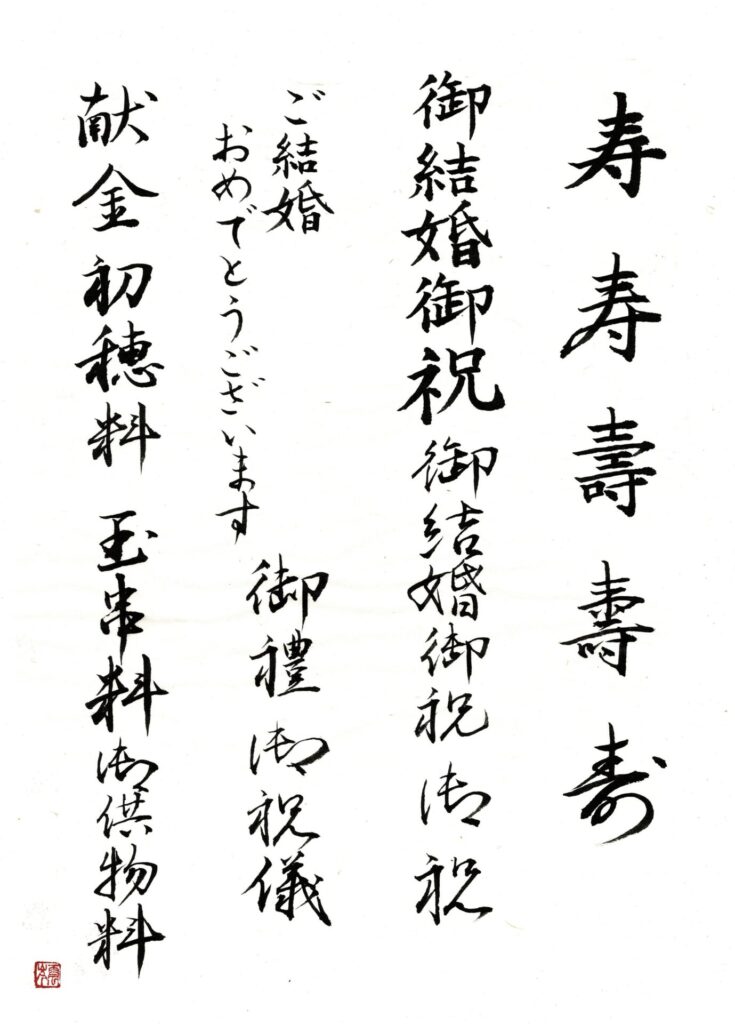 寿 寿 壽 壽 寿
御結婚御祝 御結婚御祝 御祝
ご結婚
おめでとうございます
御禮 御祝儀
献金 初穂料 玉串料 御供物料